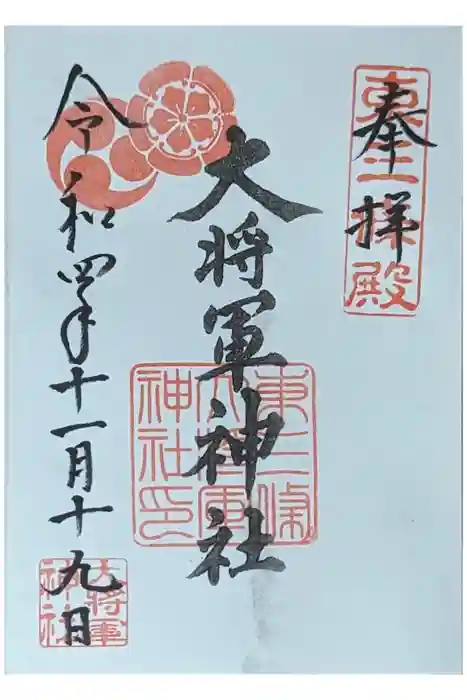 奉拝
東三條殿
大将軍神社
東三條大将軍神社印
令和四年十一月十九日
大将軍神社